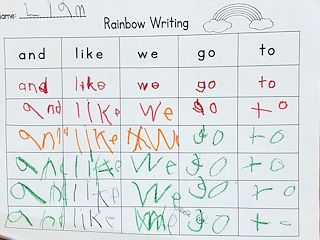 Name: Liam
Rainbow Writing
and like we go to
and like we go to
and like we go to
and like we go to
and like we go to
and like we go to
and like we go to